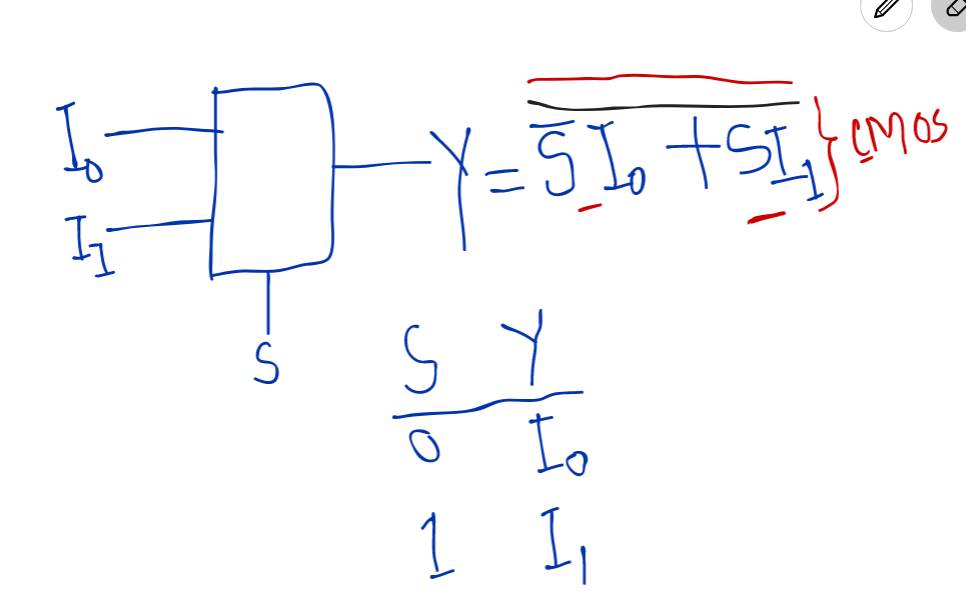 I₀
I₁
S
Y = S̅I₀ + SI₁ } CMOS
S Y
0 I₀
1 I₁